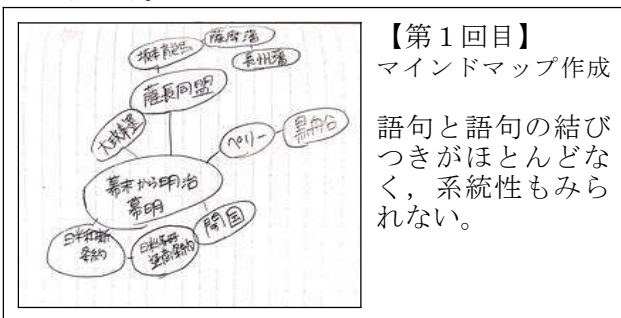 坂本龍馬
薩摩藩
長州藩
薩長同盟
大政奉還
ペリー
黒船
幕末から明治
開国
日米和親
条約
日米修好
通商条約
【第1回目】
マインドマップ作成
語句と語句の結び
つきがほとんどな
く，系統性もみら
れない。